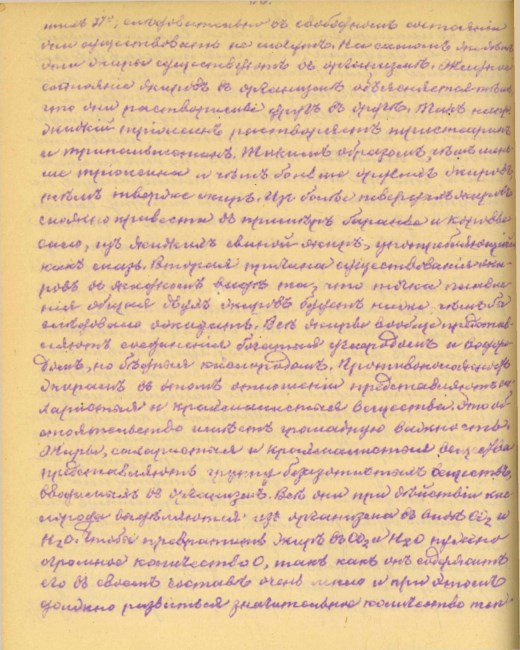 ниже 27°, следовательно въ свободномъ состояніи
они существовать не могутъ. На самомъ дѣлѣ
они жиры существуютъ въ организмѣ. Жидкое
состояніе жировъ въ организмѣ объясняется тѣмъ
что они растворимы другъ въ другѣ. Такъ напр.
жидкій тріолеинъ растворяетъ тристеаринъ
и трипальмитинъ. Такимъ образомъ, чѣмъ мень-
ше тріолеина и чѣмъ больше другихъ жировъ,
тѣмъ тверже жиръ. Изъ болѣе твердыхъ жировъ
можно привести въ примѣръ баранье и коровье
сало, изъ жидкихъ свиной жиръ, употребляющійся
какъ мазь. Вторая причина существованія жи-
ровъ въ жидкомъ видѣ та, что точка плавле-
нія общая двухъ жировъ будетъ ниже, чѣмъ
слѣдовало ожидать. Всѣ жиры вообще представ-
ляютъ соединенія богатыя углеродомъ и водоро-
домъ, но бѣдныя кислородомъ. Противоположность
жирамъ въ этомъ отношеніи представляютъ са-
харистыя и крахмалистыя вещества. Это об-
стоятельство имѣетъ громадную важность.
Жиры, сахаристыя и крахмалистыя вещества
представляютъ группу безазотистыхъ веществъ,
вводимыхъ въ организмъ. Всѣ они при дѣйствіи кис-
лорода выдѣляются изъ организма въ видѣ CO2 и
H2O. Чтобы превратить жиръ въ CO2 и H2O нужно
огромное количество O, такъ какъ онъ содержитъ
его въ своемъ составѣ очень мало и при этомъ
должно развиться значительное количество теп-